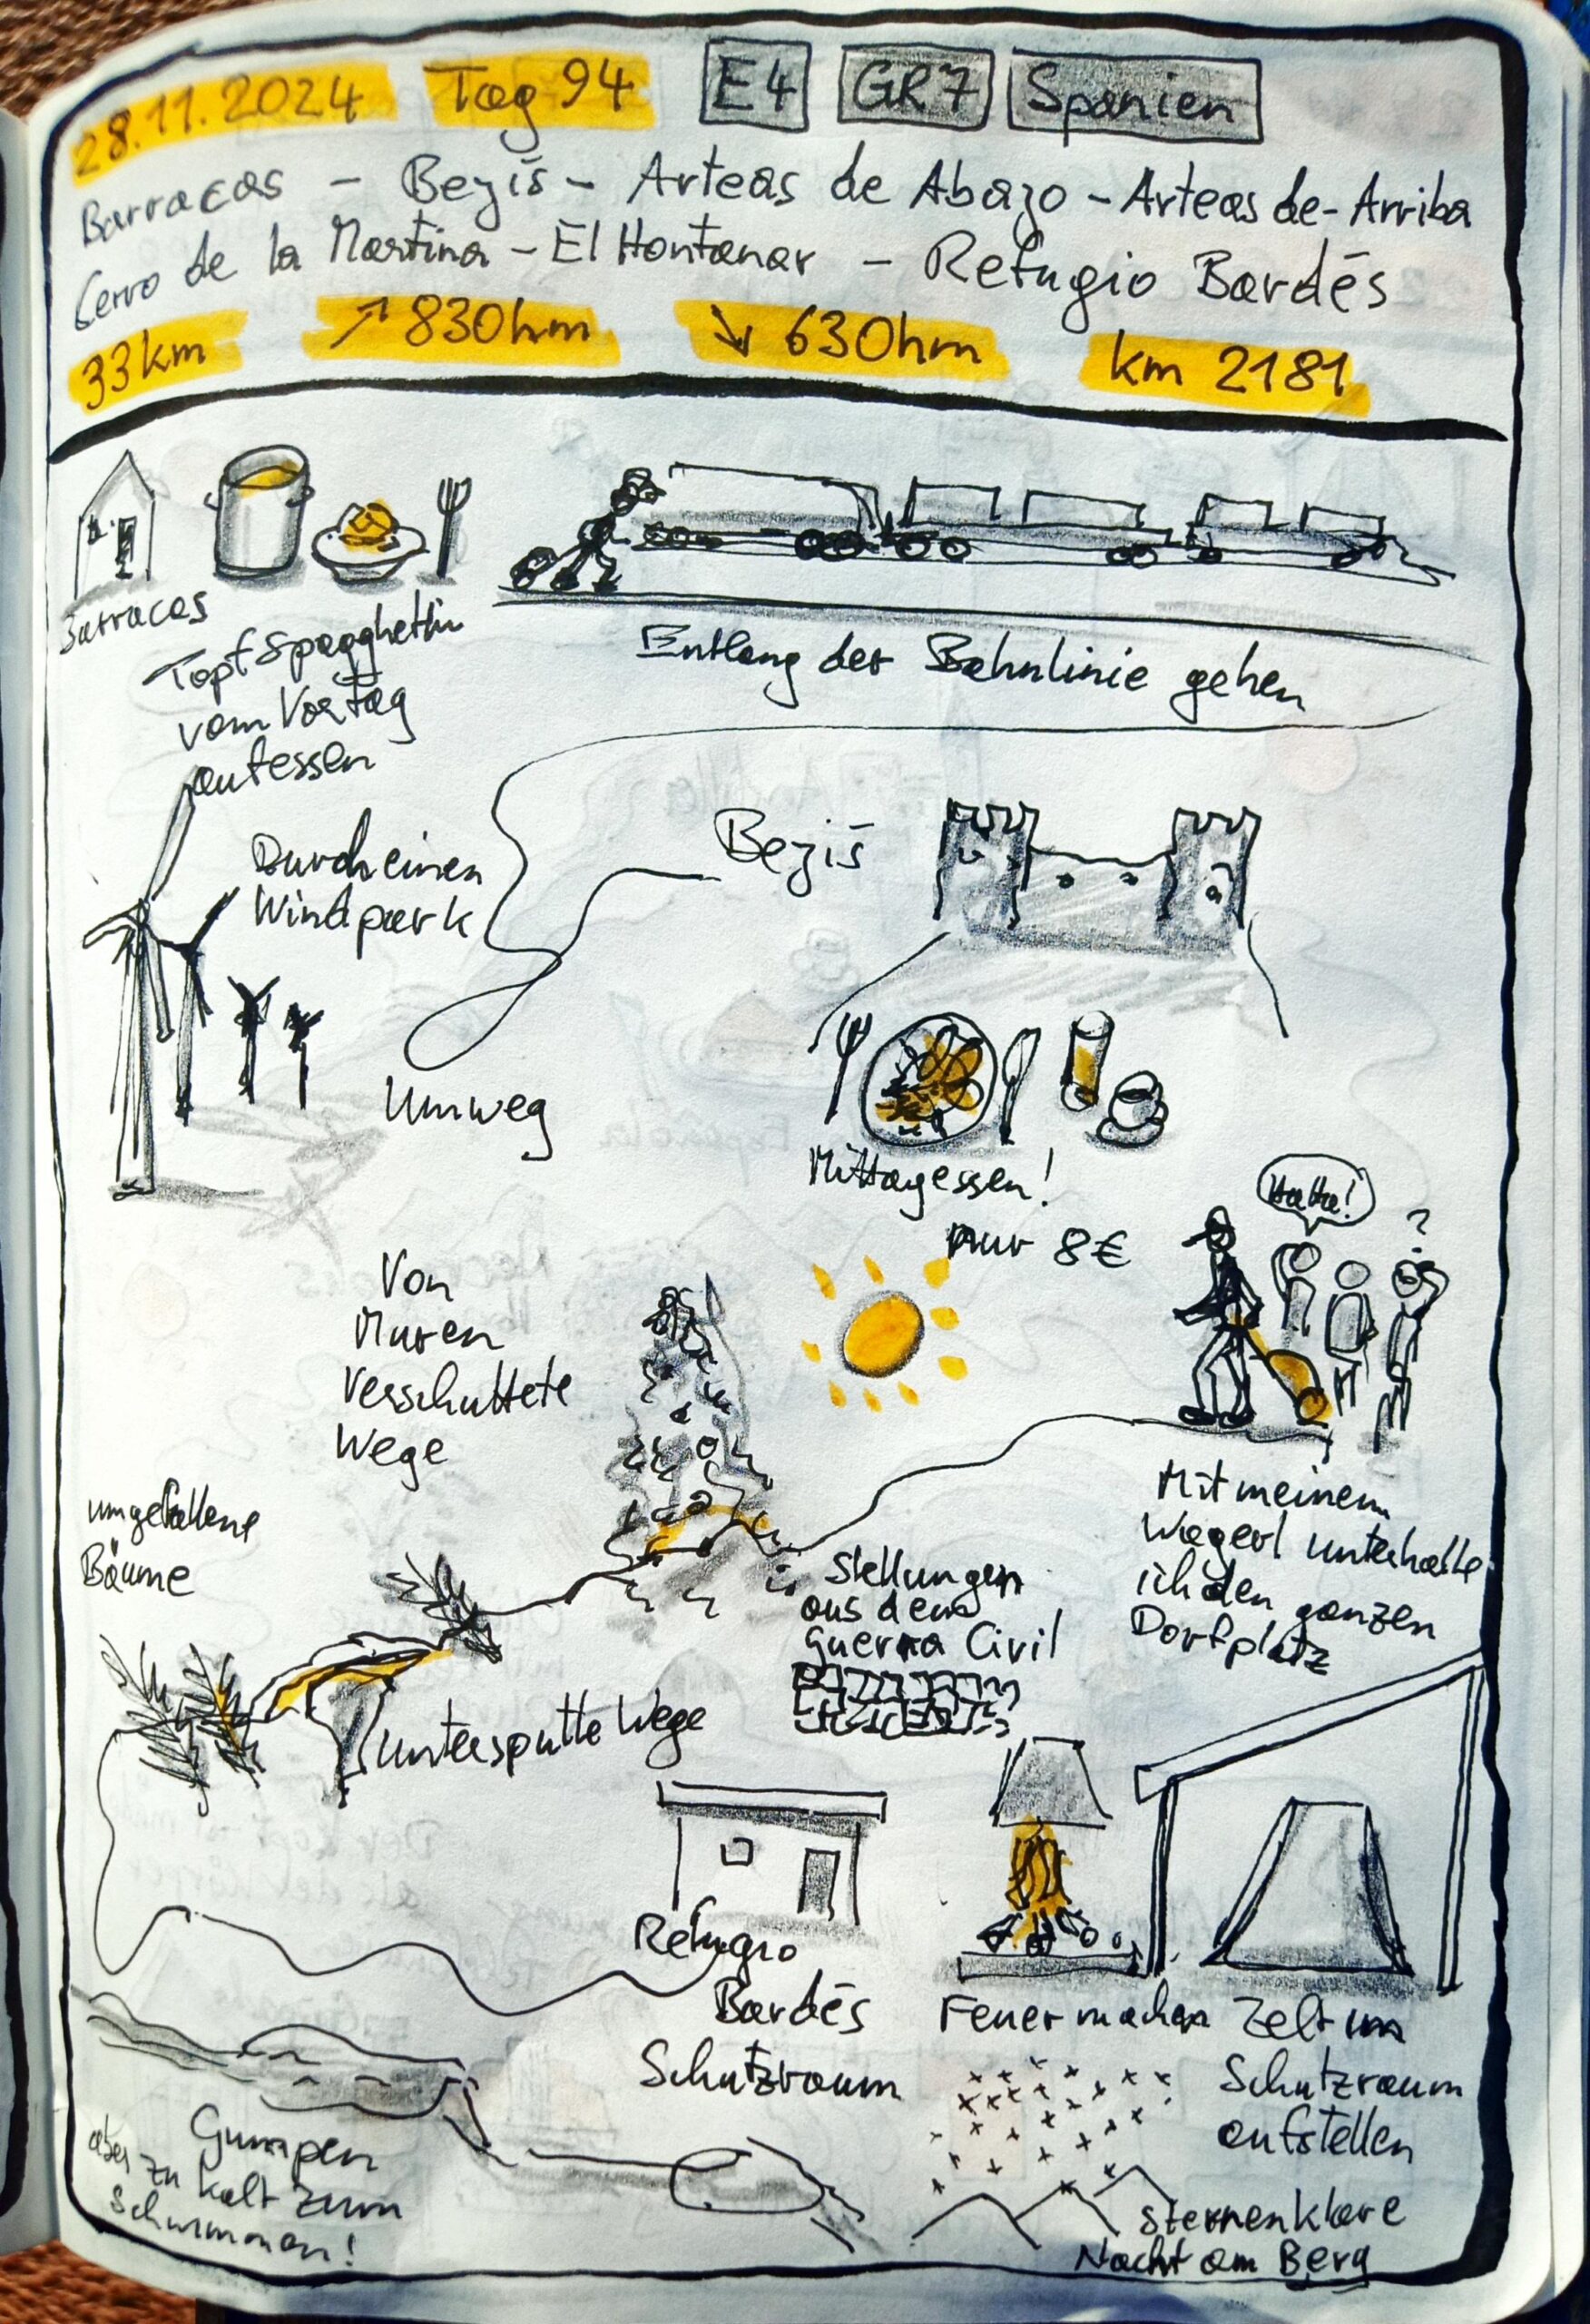 28.11.2024 Tag 94 E4 GR7 Spanien
Barracas - Bejís - Arteas de Abajo - Arteas de-Arriba
Cerro de la Martina - El Hontanar - Refugio Bardés
33km ↗ 830hm ↘ 630hm km 2181
Barracas
Topf Spagghetti
vom Vortag
aufessen
Entlang der Bahnlinie gehen
Durch einen
Windpark
Umweg
Bejís
Mittagessen!
nur 8€
HaHa!
?
Von
Muren
Verschüttete
Wege
umgefallene
Bäume
Unterspülte Wege
Stellungen
aus dem
Guerra Civil
Mit meinem
Wagerl unterhalte
ich den ganzen
Dorfplatz
Refugio
Bardés
Schutzraum
Feuer machen
Zelt im
Schutzraum
aufstellen
Gumpen
aber zu kalt zum
Schwimmen!
Sternenklare
Nacht am Berg